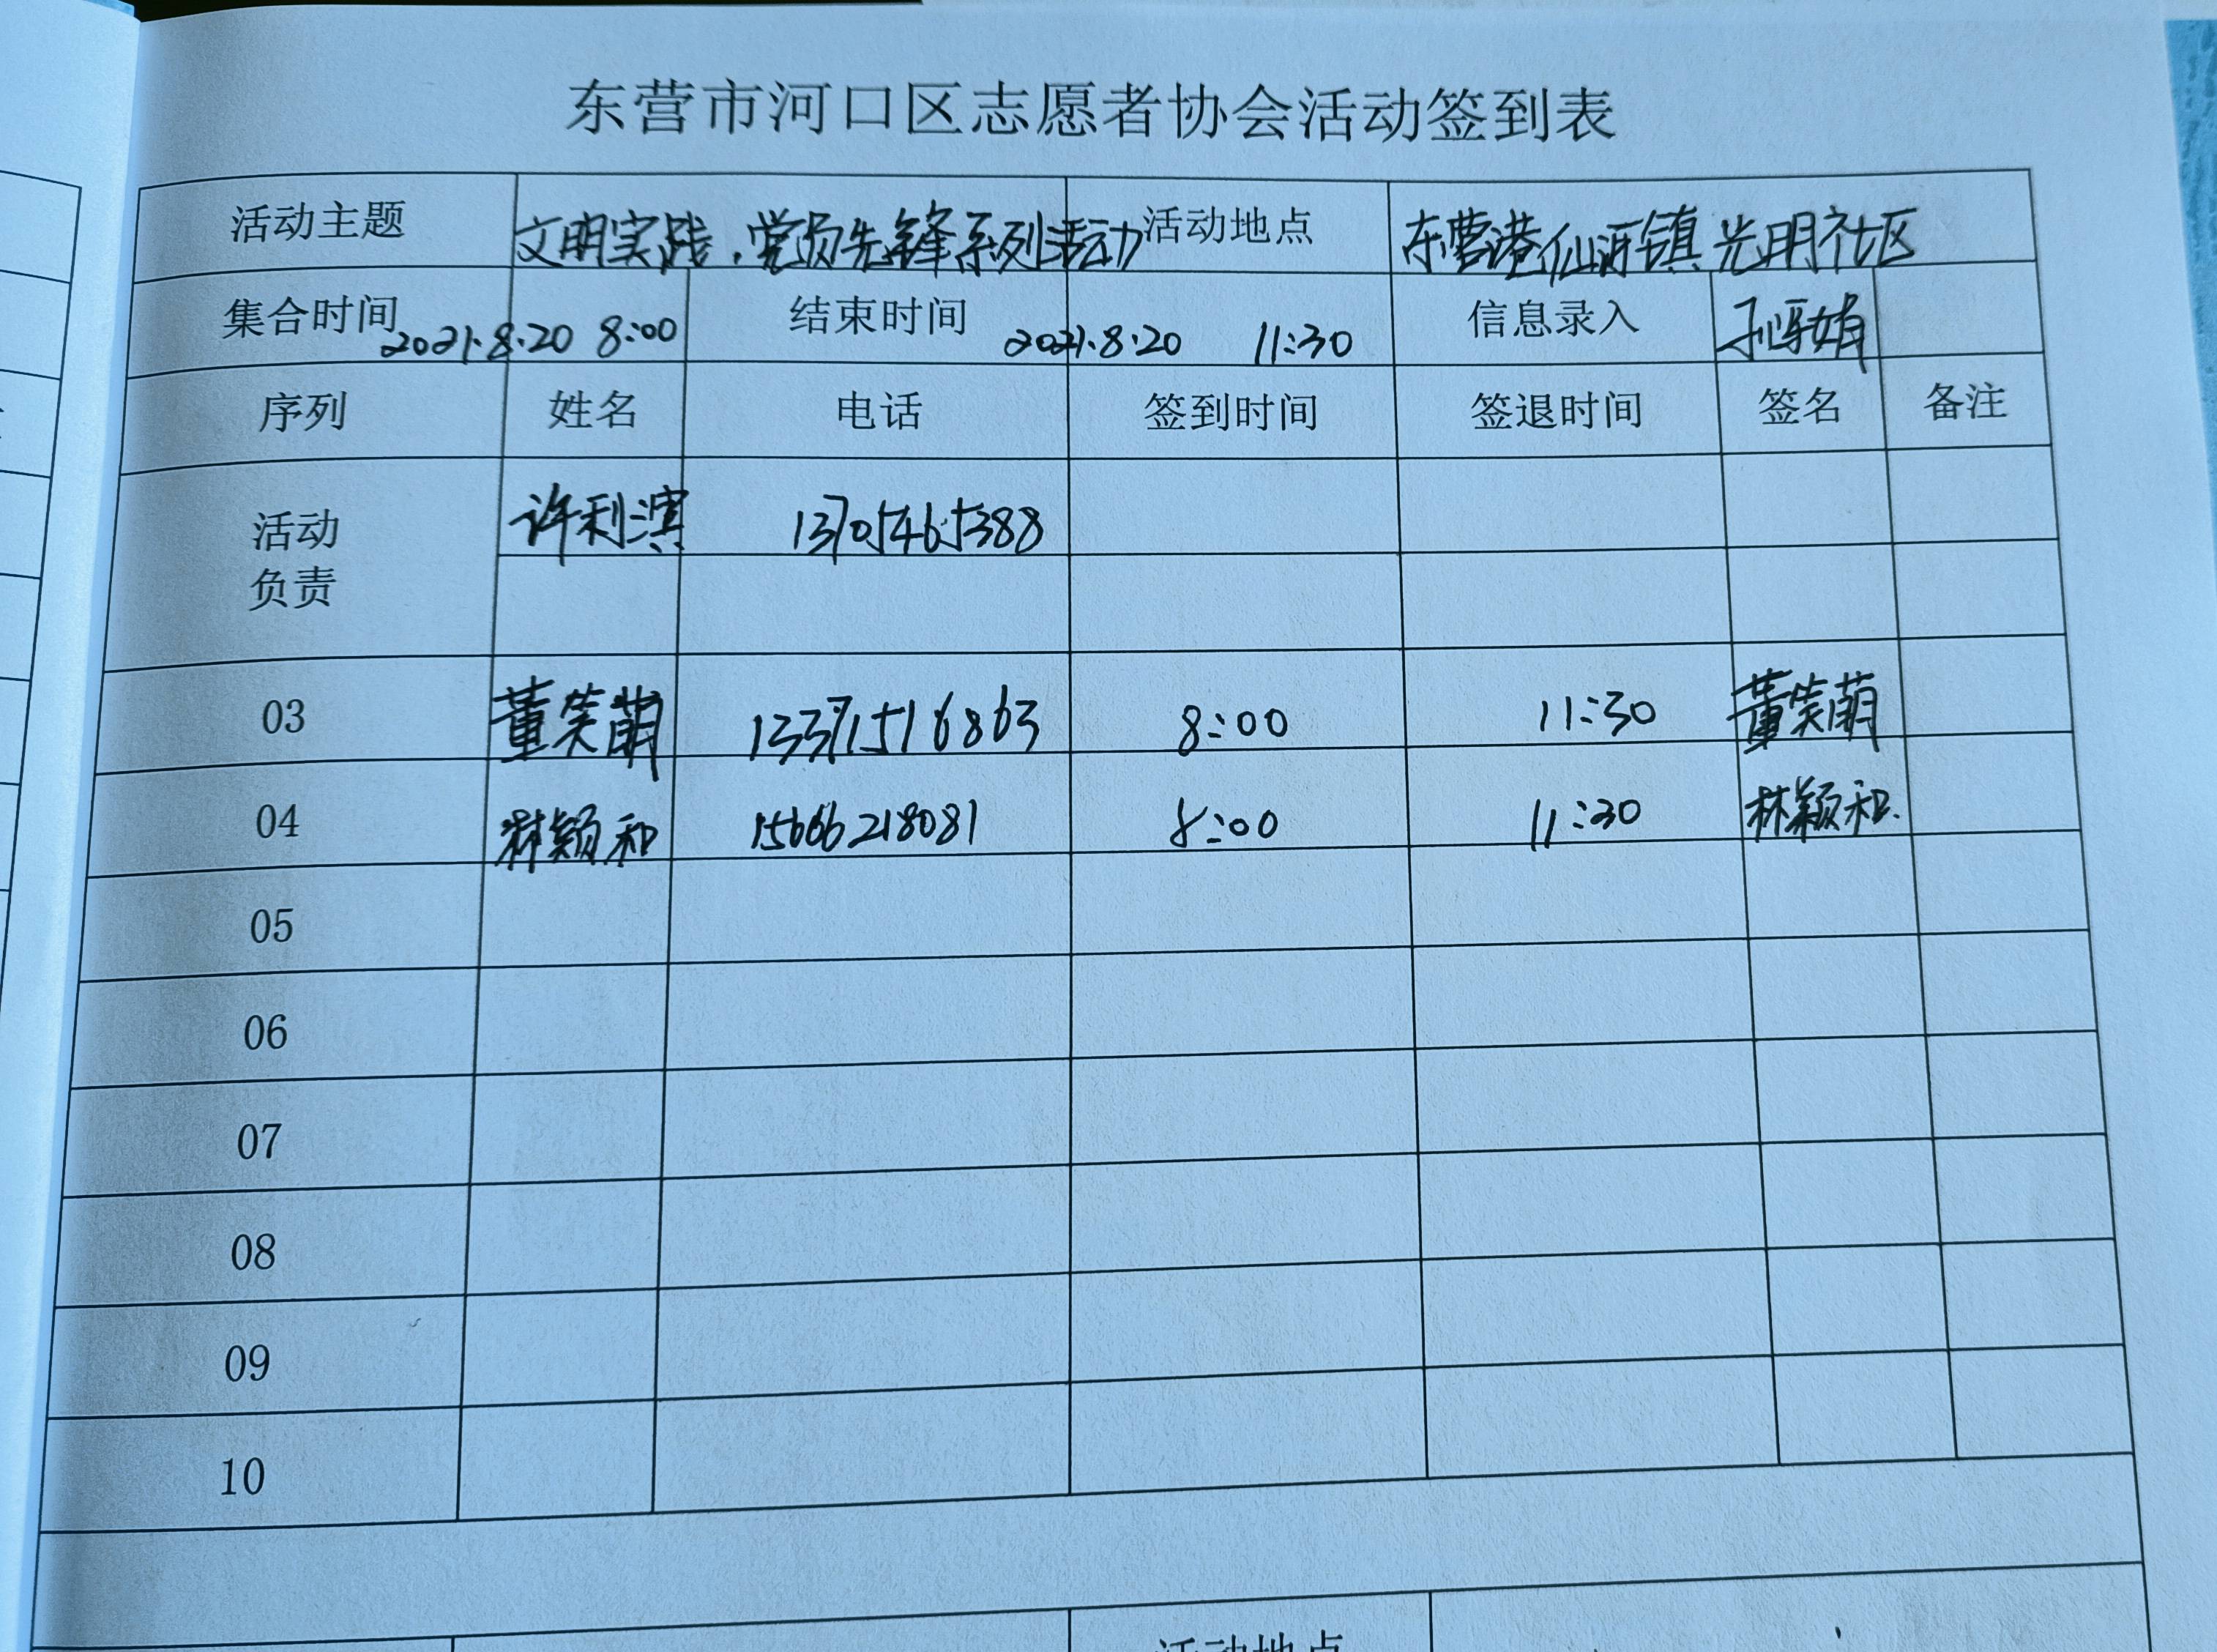 东营市河口区志愿者协会活动签到表
活动主题 文明实践,党员先锋系列活动 活动地点 东营港仙河镇光明社区
集合时间 2021.8.20 8:00 结束时间 2021.8.20 11:30 信息录入
序列 姓名 电话 签到时间 签退时间 签名 备注
活动
负责
许利滨 13705465388
03 董笑萌 13371516863 8:00 11:30 董笑萌
04 林颖和 15666218081 8:00 11:30 林颖和.
05
06
07
08
09
10
活动地点